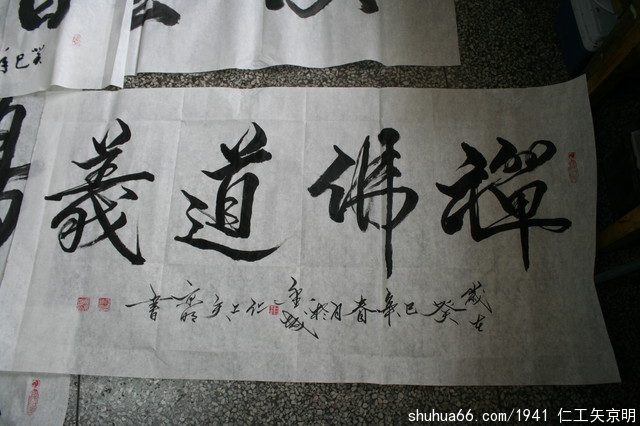 禪佛道義
歲在癸巳年春月於城仁工矢京明書
癸巳年
shuhua66.com/1941 仁工矢京明